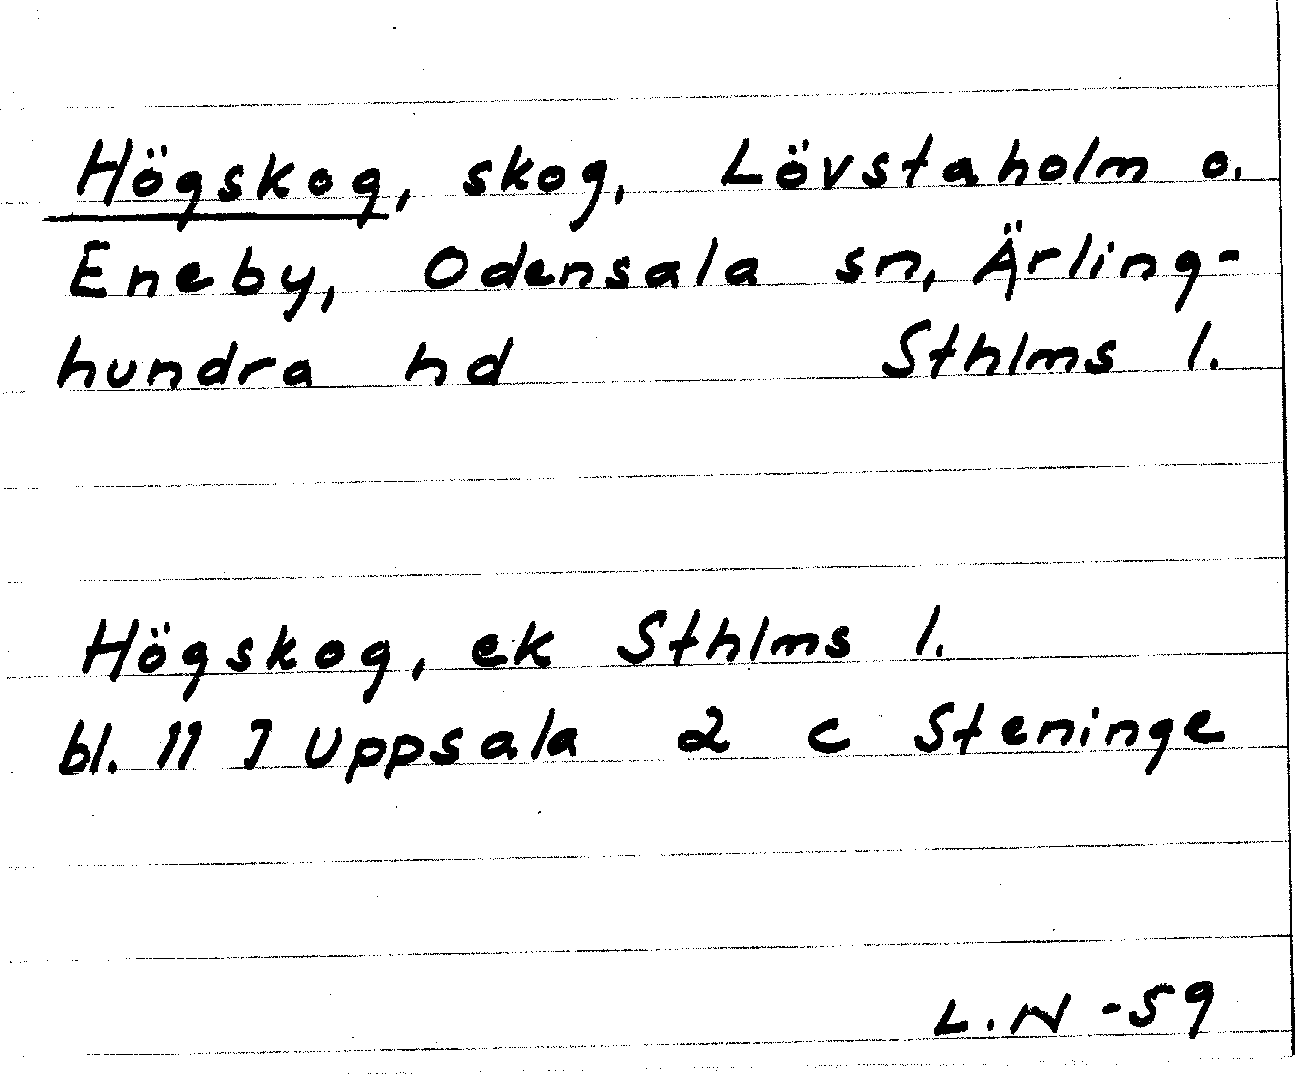 Högskog, skog, Lövstaholm o.
Eneby, Odensala sn, Ärling-
hundra hd Sthlms l.
Högskog, ek Sthlms l.
bl. 11 J Uppsala 2 c Steninge
L.N -59